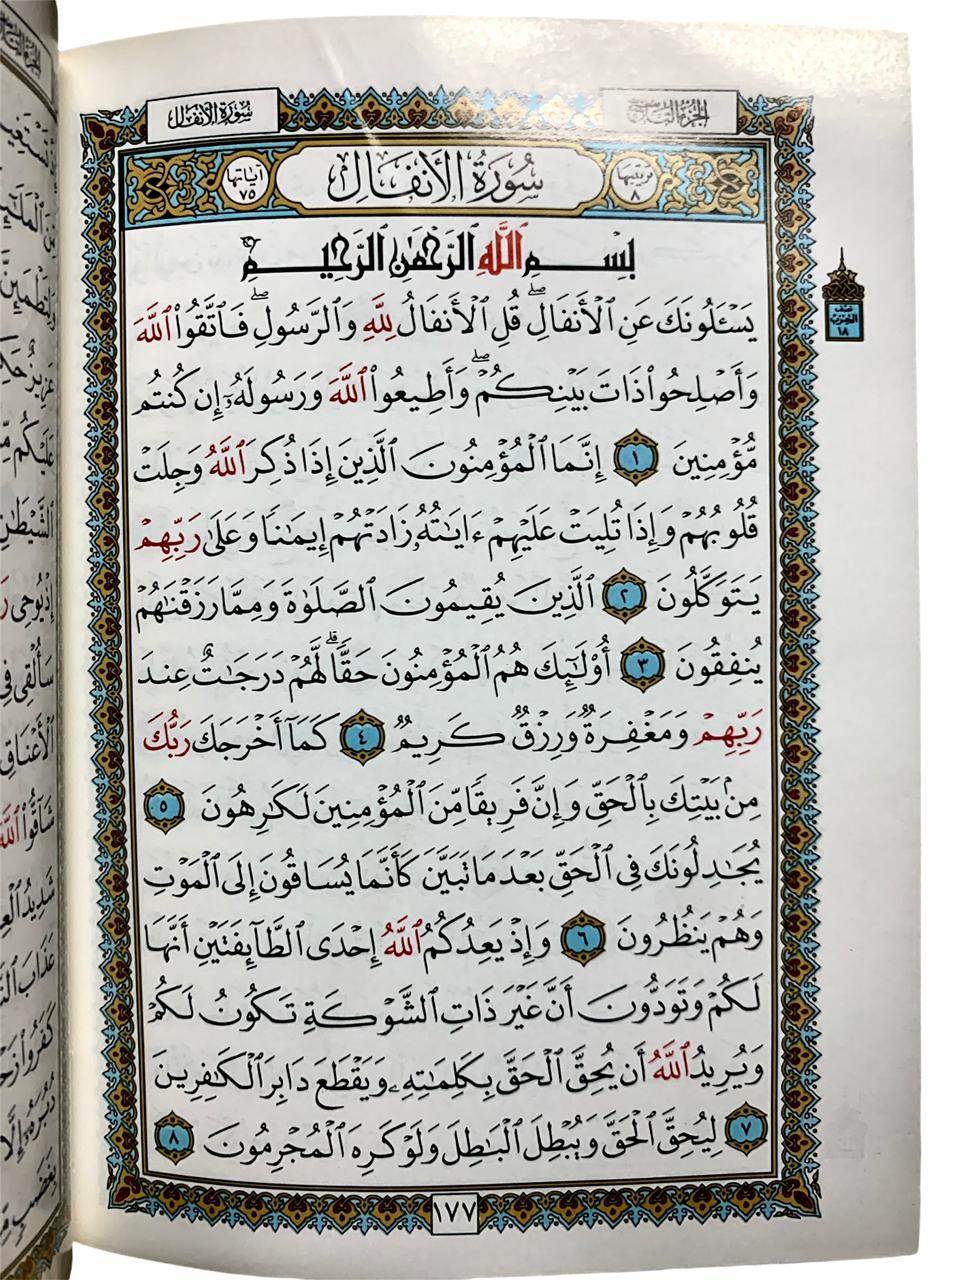 سُورَةُ الأَنفَالِ
الجُزْءُ التَّاسِعُ
آيَاتُهَا ٧٥
سُورَةُ الأَنفَالِ
تَرْتِيبُهَا ٨
بِسۡمِ ٱللَّهِ ٱلرَّحۡمَٰنِ ٱلرَّحِيمِ
يَسۡـَٔلُونَكَ عَنِ ٱلۡأَنفَالِۖ قُلِ ٱلۡأَنفَالُ لِلَّهِ وَٱلرَّسُولِۖ فَٱتَّقُواْ ٱللَّهَ
وَأَصۡلِحُواْ ذَاتَ بَيۡنِكُمۡۖ وَأَطِيعُواْ ٱللَّهَ وَرَسُولَهُۥٓ إِن كُنتُم
مُّؤۡمِنِينَ ١ إِنَّمَا ٱلۡمُؤۡمِنُونَ ٱلَّذِينَ إِذَا ذُكِرَ ٱللَّهُ وَجِلَتۡ
قُلُوبُهُمۡ وَإِذَا تُلِيَتۡ عَلَيۡهِمۡ ءَايَٰتُهُۥ زَادَتۡهُمۡ إِيمَٰنٗا وَعَلَىٰ رَبِّهِمۡ
يَتَوَكَّلُونَ ٢ ٱلَّذِينَ يُقِيمُونَ ٱلصَّلَوٰةَ وَمِمَّا رَزَقۡنَٰهُمۡ
يُنفِقُونَ ٣ أُوْلَٰٓئِكَ هُمُ ٱلۡمُؤۡمِنُونَ حَقّٗاۚ لَّهُمۡ دَرَجَٰتٌ عِندَ
رَبِّهِمۡ وَمَغۡفِرَةٞ وَرِزۡقٞ كَرِيمٞ ٤ كَمَآ أَخۡرَجَكَ رَبُّكَ
مِنۢ بَيۡتِكَ بِٱلۡحَقِّ وَإِنَّ فَرِيقٗا مِّنَ ٱلۡمُؤۡمِنِينَ لَكَٰرِهُونَ ٥
يُجَٰدِلُونَكَ فِي ٱلۡحَقِّ بَعۡدَ مَا تَبَيَّنَ كَأَنَّمَا يُسَاقُونَ إِلَى ٱلۡمَوۡتِ
وَهُمۡ يَنظُرُونَ ٦ وَإِذۡ يَعِدُكُمُ ٱللَّهُ إِحۡدَى ٱلطَّآئِفَتَيۡنِ أَنَّهَا
لَكُمۡ وَتَوَدُّونَ أَنَّ غَيۡرَ ذَاتِ ٱلشَّوۡكَةِ تَكُونُ لَكُمۡ
وَيُرِيدُ ٱللَّهُ أَن يُحِقَّ ٱلۡحَقَّ بِكَلِمَٰتِهِۦ وَيَقۡطَعَ دَابِرَ ٱلۡكَٰفِرِينَ
٧ لِيُحِقَّ ٱلۡحَقَّ وَيُبۡطِلَ ٱلۡبَٰطِلَ وَلَوۡ كَرِهَ ٱلۡمُجۡرِمُونَ ٨
نصف
الحزب
١٨
١٧٧